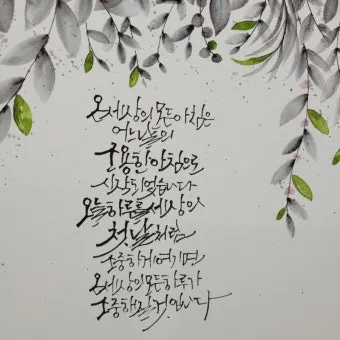 온세상의모든아침은
어느날들의
고용한아침으로
시작되었습니다
오늘하루를세상의
첫날처럼
소중하게여기면
온세상의모든하루가
소중해질것입니다